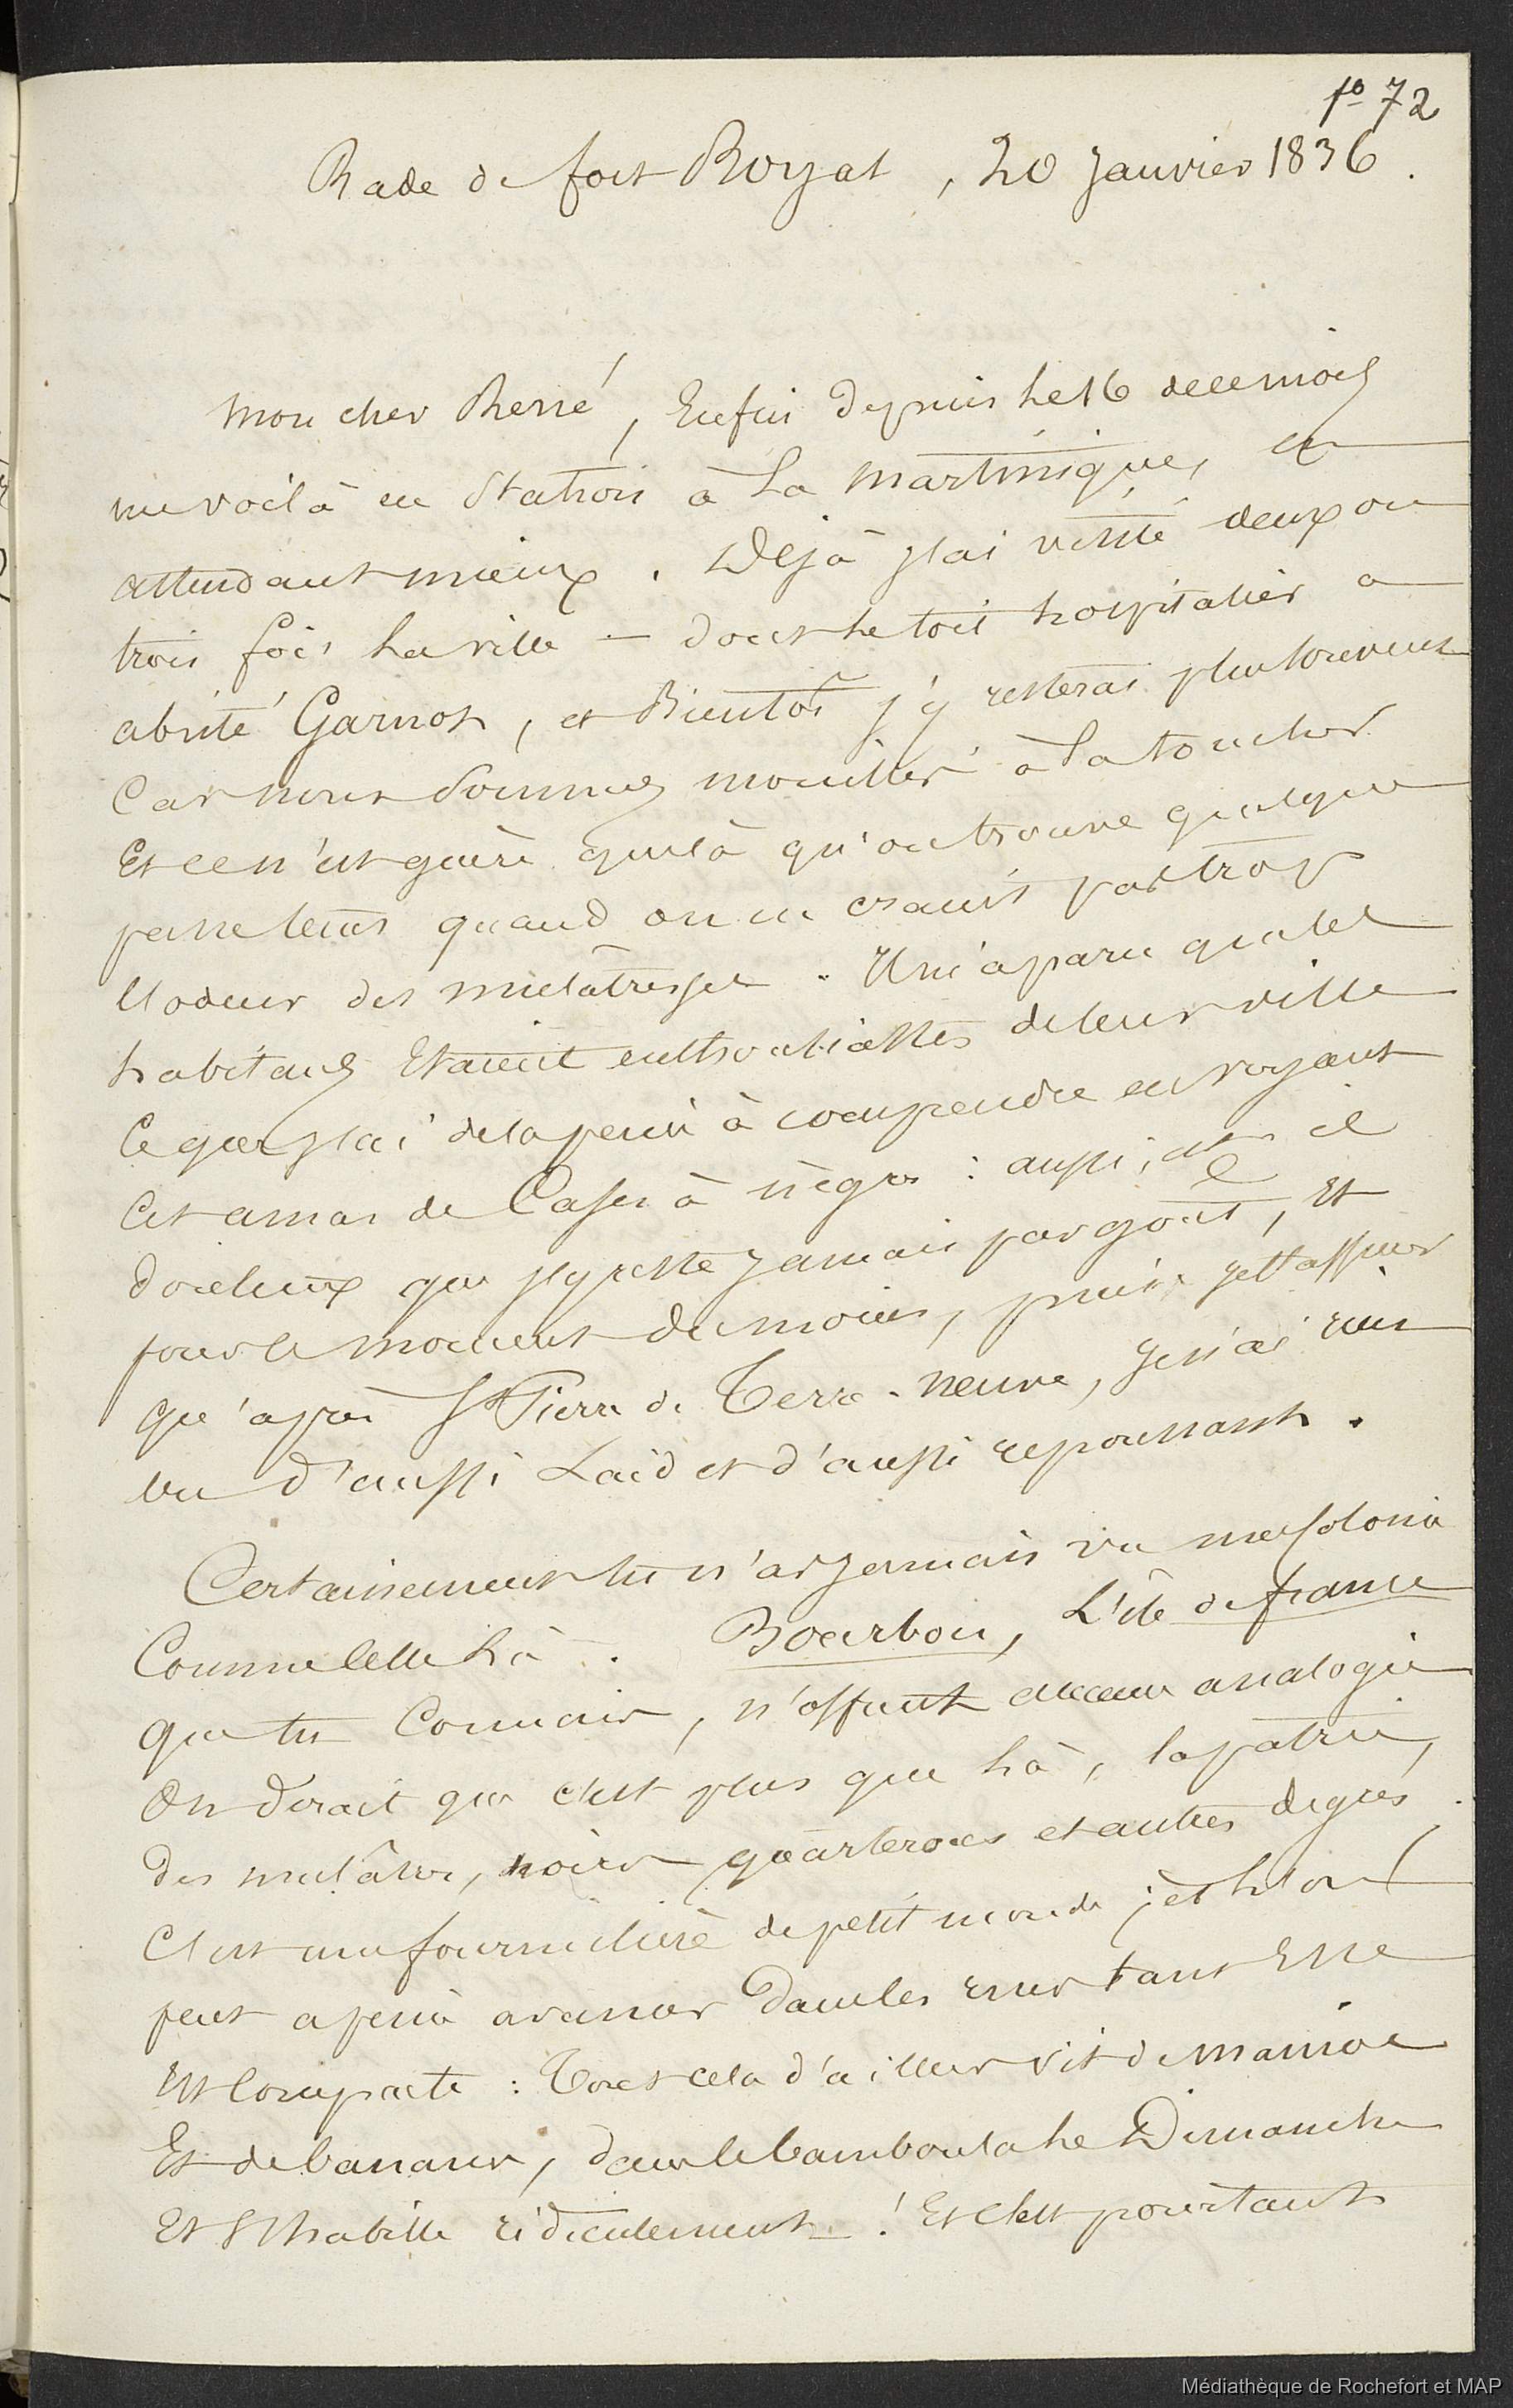 fº 72
Rade de fort Royal, 20 Janvier 1836.
Mon cher René, Enfin depuis le 16 de ce mois
me voilà en station à la Martinique, en
attendant mieux. Déjà j'ai visité deux ou
trois fois la ville — dont le toit hospitalier a
abrité Garnot, et Bientôt j'y resterai plus souvent
Car nous sommes mouillés à la toucher
Et ce n'est guère que là qu'on trouve quelque
passe tems quand on ne craint pas trop
l'odeur des mulâtresses. Il m'a paru que les
habitans Etaient enthousiastes de leur ville
Ce que j'ai de la peine à comprendre en voyant
Cet amas de Cases à nègres : aussi, est il
douteux que j'y reste jamais par goût, Et
pour le moment du moins, puis je t'assurer
qu'après St Pierre de Terre-neuve, je n'ai rien
vu d'aussi Laid et d'aussi repoussant.
Certainement tu n'as jamais vu une Colonie
Comme celle là. Bourbon, L'île de france
que tu Connais, n'offrent aucune analogie
On dirait que c'est plus que là, la patrie,
des mulâtres, noirs quarterons et autres degrés.
C'est une fourmilière de petit monde ; et l'on
peut a peine avancer dans les rues tant Elle
Est Compacte : Tout cela d'ailleurs vit de manioc
Et de bananes, danse le bamboula le Dimanche
Et s'habille ridiculement ! Et c'est pourtant
Médiathèque de Rochefort et MAP